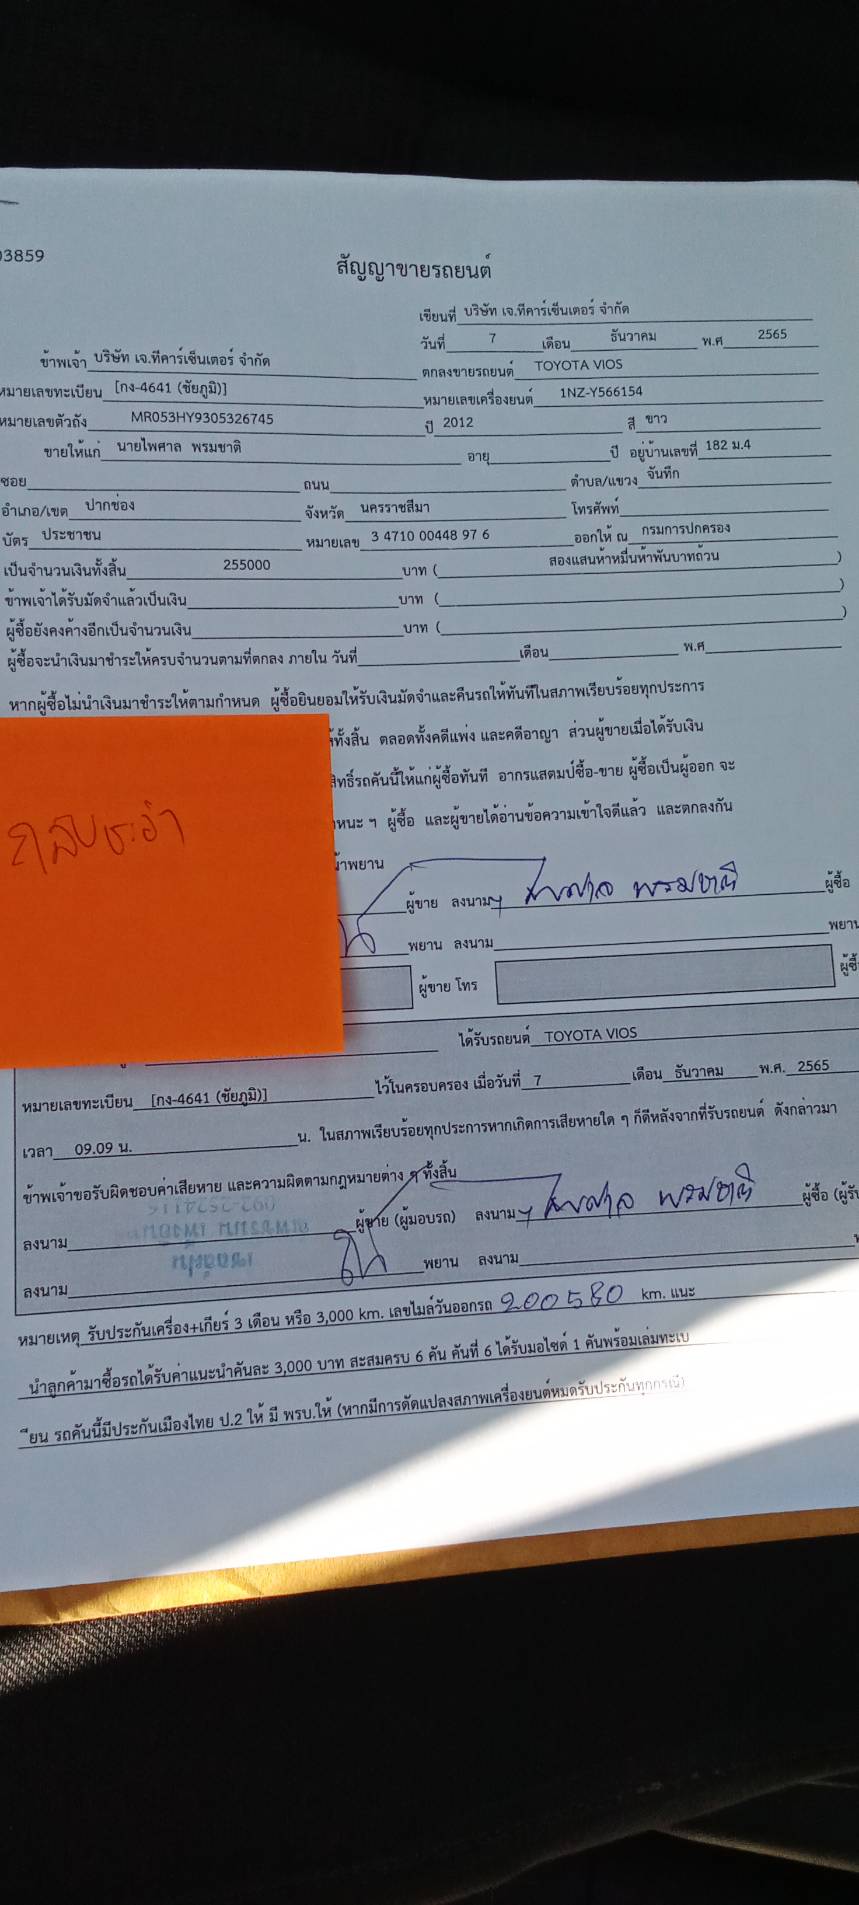 03859
สัญญาขายรถยนต์
เขียนที่ บริษัท เจ.ทีคาร์เซ็นเตอร์ จำกัด
วันที่ 7 เดือน ธันวาคม พ.ศ 2565
ข้าพเจ้า บริษัท เจ.ทีคาร์เซ็นเตอร์ จำกัด ตกลงขายรถยนต์ TOYOTA VIOS
หมายเลขทะเบียน [กง-4641 (ชัยภูมิ)] หมายเลขเครื่องยนต์ 1NZ-Y566154
หมายเลขตัวถัง MR053HY9305326745 ปี 2012 สี ขาว
ขายให้แก่ นายไพศาล พรมชาติ อายุ ปี อยู่บ้านเลขที่ 182 ม.4
ซอย ถนน ตำบล/แขวง จันทึก
อำเภอ/เขต ปากช่อง จังหวัด นครราชสีมา โทรศัพท์
บัตร ประชาชน หมายเลข 3 4710 00448 97 6 ออกให้ ณ กรมการปกครอง
เป็นจำนวนเงินทั้งสิ้น 255000 บาท ( สองแสนห้าหมื่นห้าพันบาทถ้วน )
ข้าพเจ้าได้รับมัดจำแล้วเป็นเงิน บาท ( )
ผู้ซื้อยังคงค้างอีกเป็นจำนวนเงิน บาท ( )
ผู้ซื้อจะนำเงินมาชำระให้ครบจำนวนตามที่ตกลง ภายใน วันที่ เดือน พ.ศ
หากผู้ซื้อไม่นำเงินมาชำระให้ตามกำหนด ผู้ซื้อยินยอมให้รับเงินมัดจำและคืนรถให้ทันทีในสภาพเรียบร้อยทุกประการ
ทั้งสิ้น ตลอดทั้งคดีแพ่ง และคดีอาญา ส่วนผู้ขายเมื่อได้รับเงิน
สิทธิ์รถคันนี้ให้แก่ผู้ซื้อทันที อากรแสตมป์ซื้อ-ขาย ผู้ซื้อเป็นผู้ออก จะ
หนะ ๆ ผู้ซื้อ และผู้ขายได้อ่านข้อความเข้าใจดีแล้ว และตกลงกัน
พยาน
ผู้ขาย ลงนาม ไพศาล พรมชาติ ผู้ซื้อ
พยาน ลงนาม พยาน
ผู้ขาย โทร ผู้ซื้
ได้รับรถยนต์ TOYOTA VIOS
หมายเลขทะเบียน [กง-4641 (ชัยภูมิ)] ไว้ในครอบครอง เมื่อวันที่ 7 เดือน ธันวาคม พ.ศ. 2565
เวลา 09.09 น. น. ในสภาพเรียบร้อยทุกประการหากเกิดการเสียหายใด ๆ ก็ดีหลังจากที่รับรถยนต์ ดังกล่าวมา
ข้าพเจ้าขอรับผิดชอบค่าเสียหาย และความผิดตามกฎหมายต่าง ๆ ทั้งสิ้น
ลงนาม ผู้ขาย (ผู้มอบรถ) ลงนาม ไพศาล พรมชาติ ผู้ซื้อ (ผู้รับ
ลงนาม พยาน ลงนาม
หมายเหตุ รับประกันเครื่อง+เกียร์ 3 เดือน หรือ 3,000 km. เลขไมล์วันออกรถ 200580 km. แนะ
นำลูกค้ามาซื้อรถได้รับค่าแนะนำคันละ 3,000 บาท สะสมครบ 6 คัน คันที่ 6 ได้รับมอไซด์ 1 คันพร้อมเล่มทะเบ
ียน รถคันนี้มีประกันเมืองไทย ป.2 ให้ มี พรบ.ให้ (หากมีการดัดแปลงสภาพเครื่องยนต์หมดรับประกันทุกกรณี)